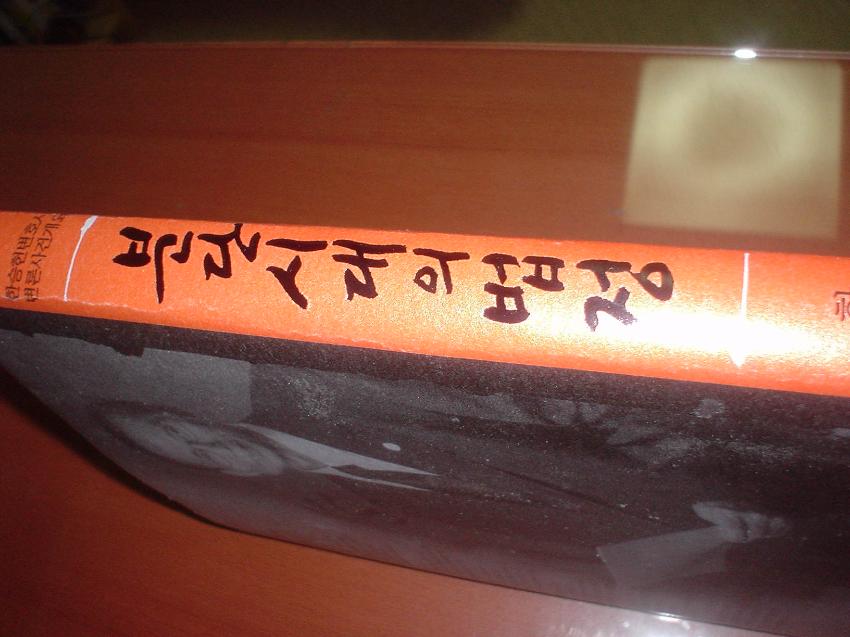 한승헌변호사
변론사건개요
분단시대의법정